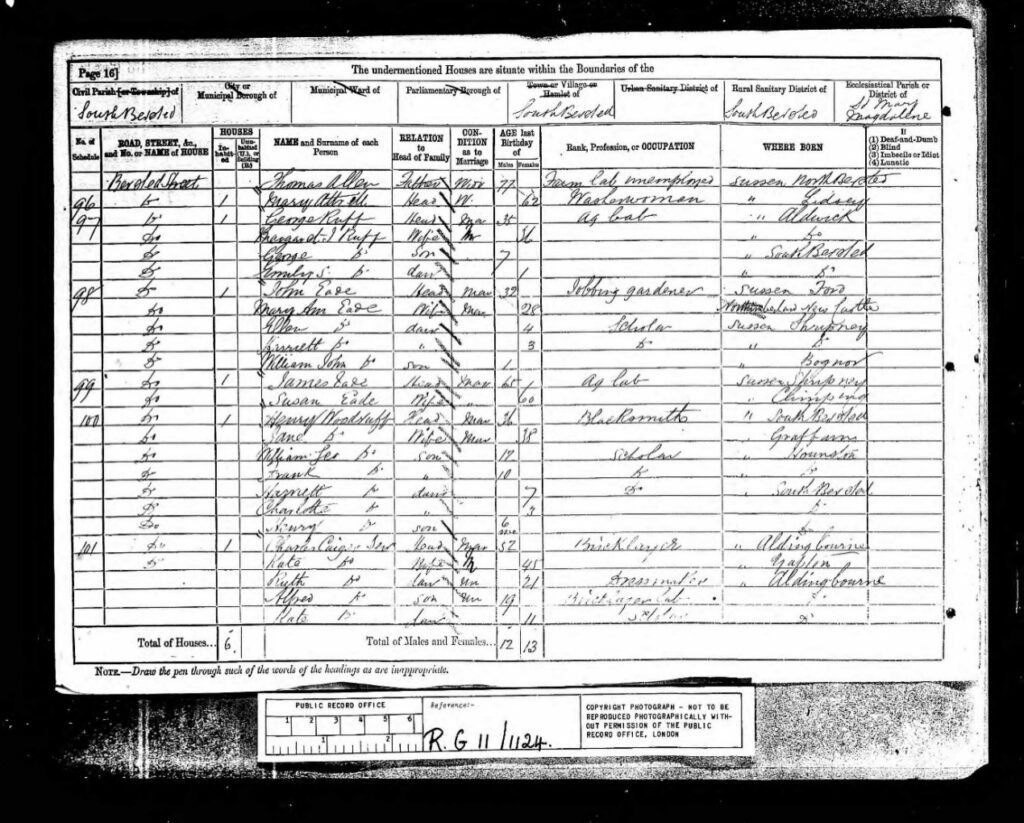 Page 16]
The undermentioned Houses are situate within the Boundaries of the
Civil Parish [or Township] of
South Bersted
City or Municipal Borough of
Municipal Ward of
Parliamentary Borough of
Town or Village or Hamlet of
South Bersted
Urban Sanitary District of
Rural Sanitary District of
South Bersted
Ecclesiastical Parish or District of
St Mary Magdalene
No. of Schedule
ROAD, STREET, &c., and No. or NAME of HOUSE
HOUSES
Inhabited
Uninhabited (U.), or Building (B.)
NAME and Surname of each Person
RELATION to Head of Family
CONDITION as to Marriage
AGE last Birthday of
Males
Females
Rank, Profession, or OCCUPATION
WHERE BORN
If
(1) Deaf-and-Dumb
(2) Blind
(3) Imbecile or Idiot
(4) Lunatic
Bersted Street 1 Thomas Allen Father 77 Farm Lab unemployed Sussex North Bersted
96 Do 1 Mary Head W. 62 Washerwoman " Lidsey
97 Do 1 George Ruff Head Mar 35 Ag Lab " Aldwick
Do Margaret J Ruff Wife M 36 " Do
Do George Do Son 7 " South Bersted
Do Emily S. Do daur 1 " Do
98 Do 1 John Eade Head Mar 32 Jobbing gardener Sussex Ford
Do Mary Ann Eade Wife Mar 28 Northumberland New Castle
Do Ellen Do daur 4 Scholar Sussex Shripney
Do Harriett Do " 3 Do " Do
Do William John Do son 1 " Bognor
99 Do 1 James Eade Head Mar 65 Ag Lab Sussex Shripney
Do Susan Eade Wife " 60 " Climping
100 Do 1 Henry Woodruff Head Mar 36 Blacksmith " South Bersted
Do Jane Do Wife Mar 38 " Graffham
Do William Geo Do son 12 Scholar "
Do Frank Do " 10 Do " Do
Do Harriett Do daur 7 Do " South Bersted
Do Charlotte Do "
Do Henry Do son 6 mo Do
101 Do 1 Charles Head Mar 52 Bricklayer " Aldingbourne
Do Kate Do Wife M 45 " Yapton
Ruth Do daur Un 21 Dressmaker " Aldingbourne
Alfred Do son Un 19 Bricklayer Lab Do
Kate Do daur 11 Scholar Do
Total of Houses... 6 Total of Males and Females... 12 13
NOTE.—Draw the pen through such of the words of the headings as are inappropriate.
PUBLIC RECORD OFFICE
1 2 3 4 5 6
1 2
Reference:-
R.G 11 / 1124.
COPYRIGHT PHOTOGRAPH - NOT TO BE
REPRODUCED PHOTOGRAPHICALLY WITH-
OUT PERMISSION OF THE PUBLIC
RECORD OFFICE, LONDON